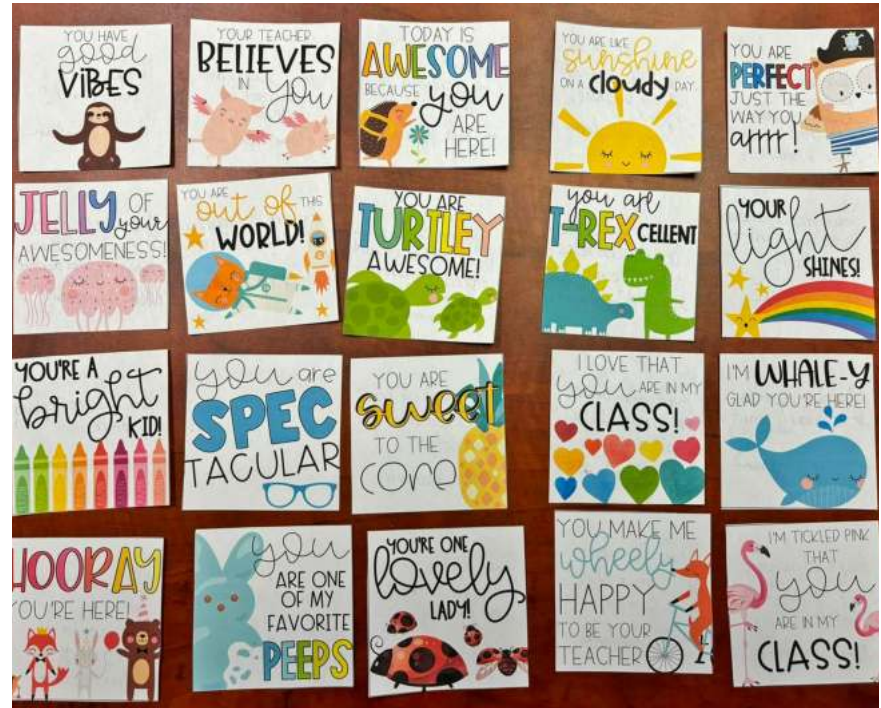 YOU HAVE
good
VIBES
YOUR TEACHER
BELIEVES
IN you
TODAY IS
AWESOME
BECAUSE you
ARE
HERE!
YOU ARE LIKE
sunshine
ON A cloudy DAY.
YOU ARE
PERFECT
JUST THE
WAY YOU
arrrr!
JELLY OF
your
AWESOMENESS!
YOU ARE
out of THIS
WORLD!
YOU ARE
TURTLEY
AWESOME!
you are
T-REX CELLENT
YOUR
light
SHINES!
YOU'RE A
bright
KID!
you are
SPEC
TACULAR
YOU ARE
sweet
TO THE
core
I LOVE THAT
you ARE IN MY
CLASS!
I'M WHALE-Y
GLAD YOU'RE HERE!
HOORAY
YOU'RE HERE!
you
ARE ONE
OF MY
FAVORITE
PEEPS
YOU'RE ONE
lovely
LADY!
YOU MAKE ME
wheely
HAPPY
TO BE YOUR
TEACHER
I'M TICKLED PINK
THAT
you
ARE IN MY
CLASS!